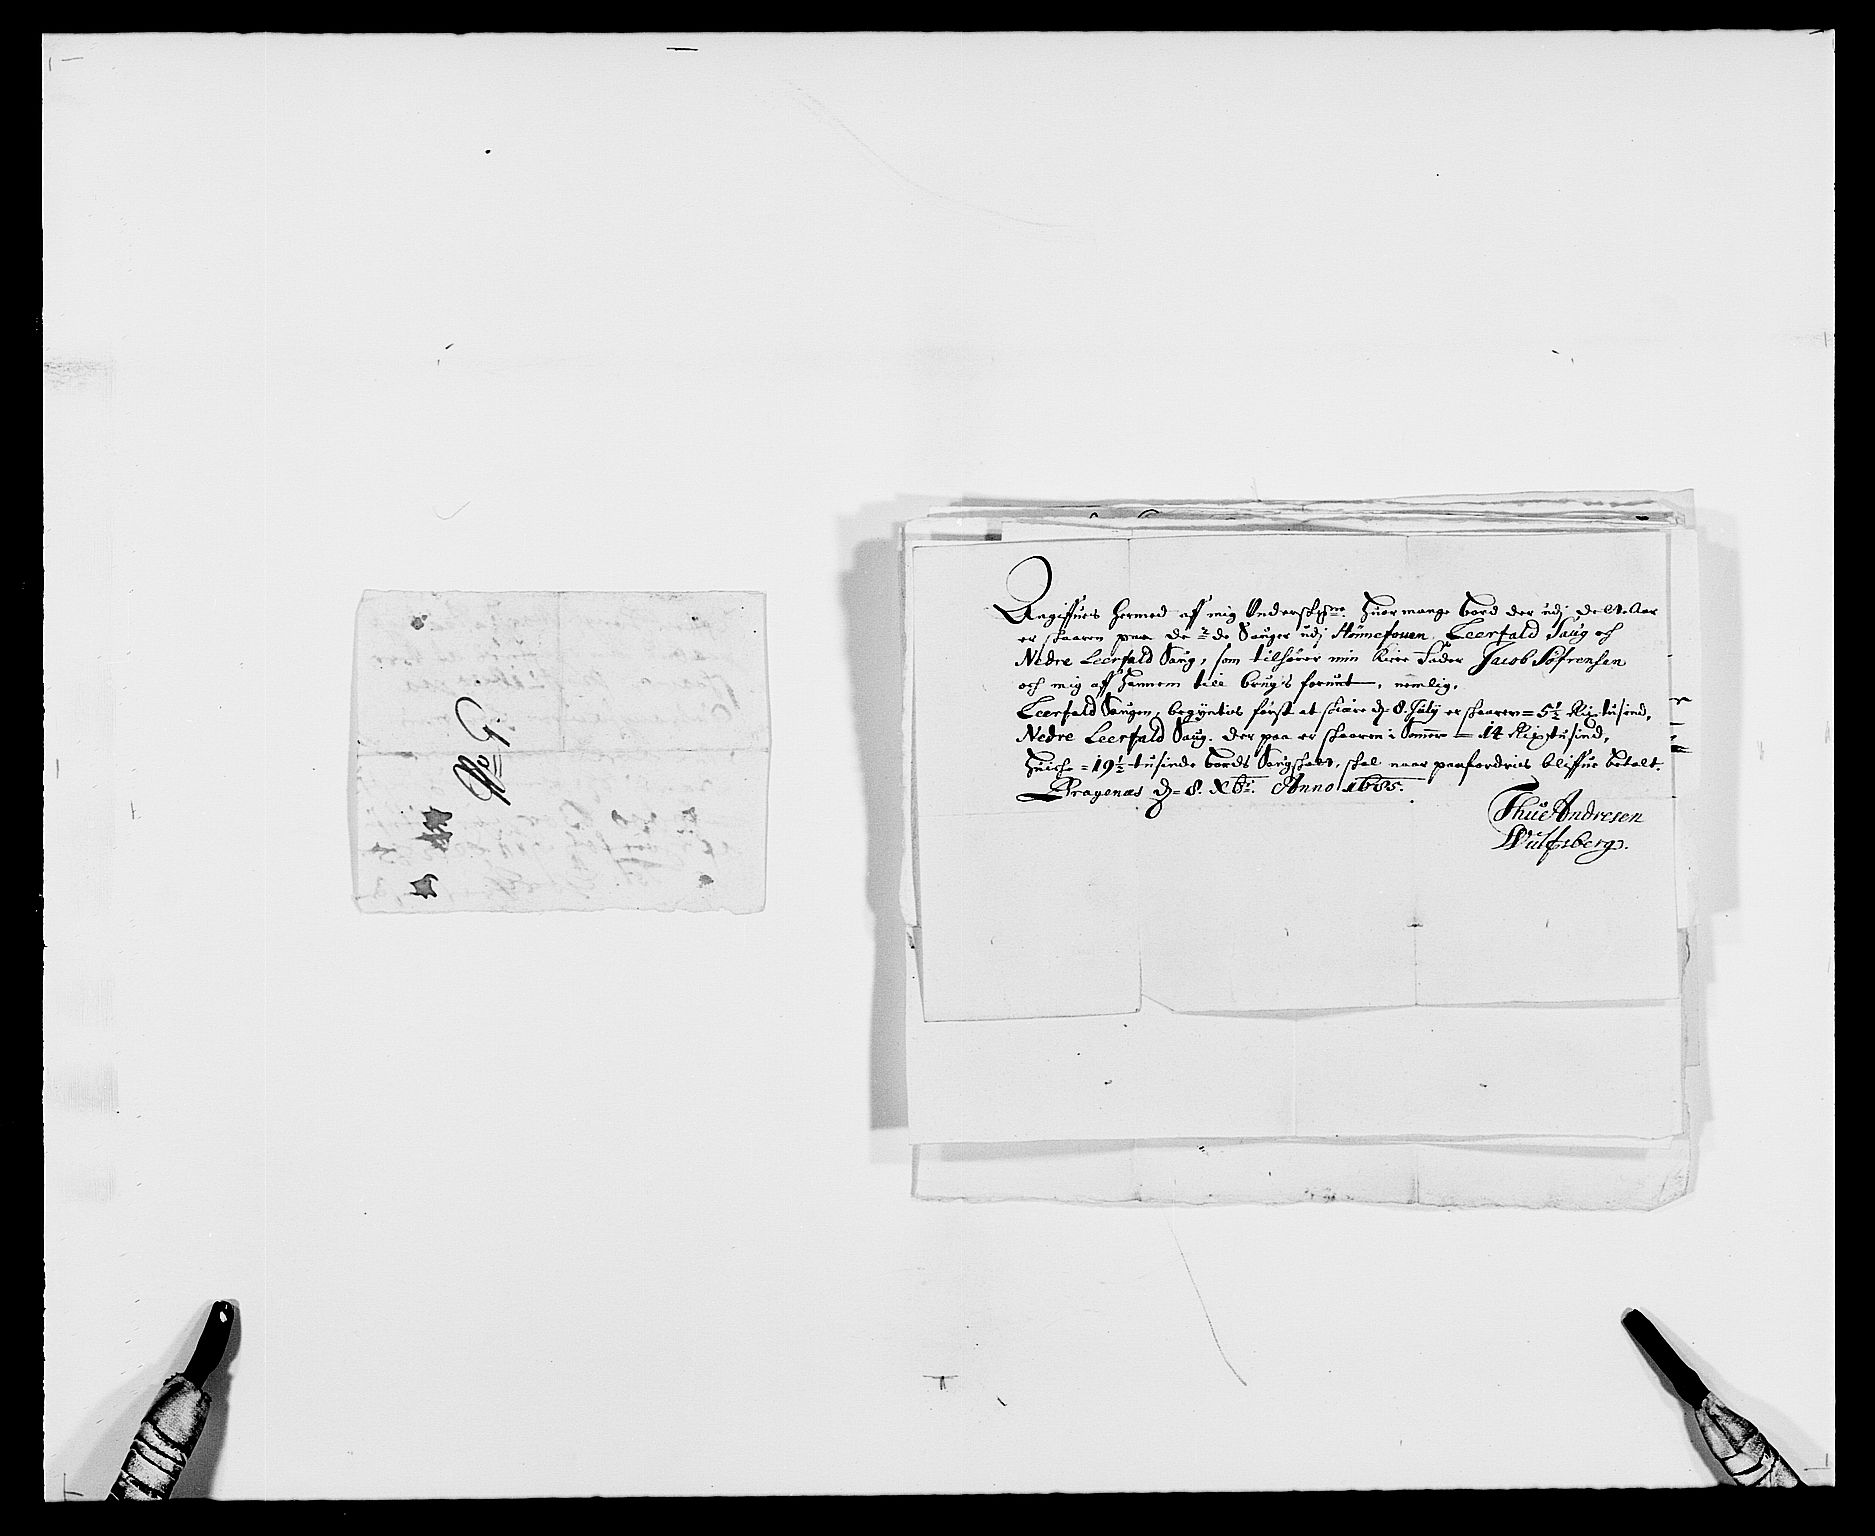 No G.
Angiffues hermed aff mig Underschrne. huor mange bord der udj dette Aar
er skaaren paa de 2de Sauger udj Hønnefouen, Leerfald Saug och
Nedre Leerfald Saug, som tilhører min Kiere Fader Jacob Søfrensen
och mig aff hannem till brugs forunt, nemlig,
Leerfald Saugen, begyntes først at skiære d. 8. July er skaaren = 5½ tusind,
Nedre Leerfald Saug. der paa er skaaren i Sommer = 14 tusind,
huilche = 19½ tusinde bords Saugskatt, skal naar paafordris bliffue betalt.
Bragenæs d. 8. Xbr. Anno 1685.
Thüe Andresen
Wulfsberg.